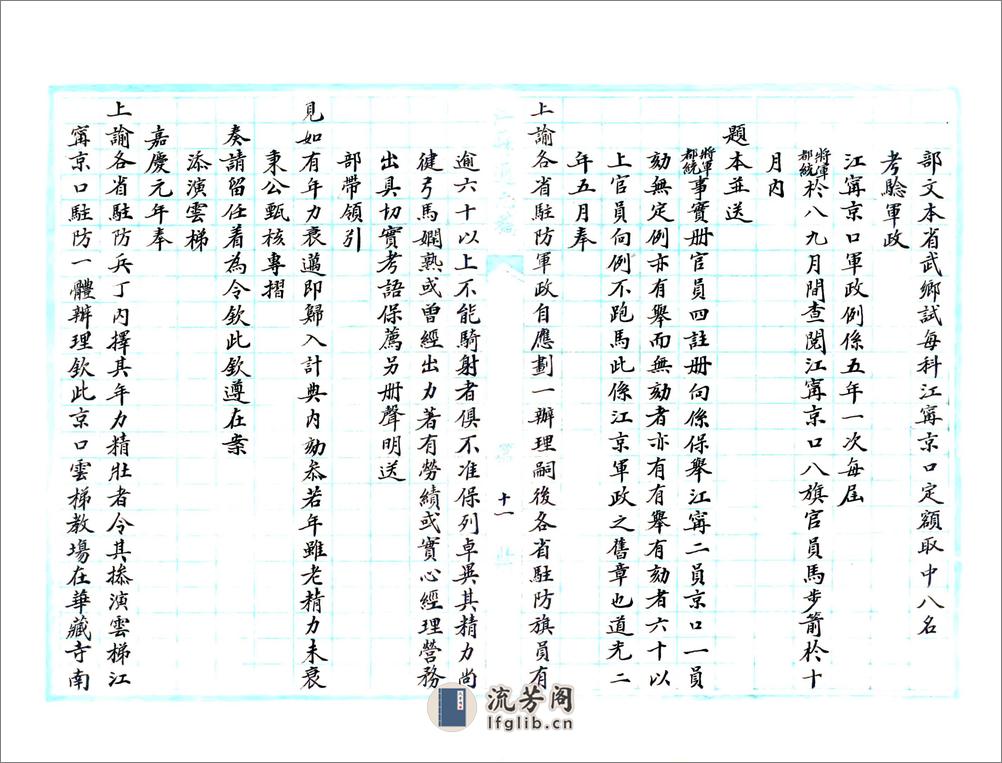 部文本省武鄉試每科江寗京口定額取中八名
考驗軍政
江寗京口軍政例係五年一次每屆
將軍都統於八九月間查閱江寗京口八旗官員馬步箭於十
月內
題本並送
將軍都統事實册官員四註册向係保舉江寗二員京口一員
劾無定例亦有舉而無劾者亦有有舉有劾者六十以
上官員向例不跑馬此係江京軍政之舊章也道光二
年五月奉
上諭各省駐防軍政自應劃一辦理嗣後各省駐防旗員有
十一
逾六十以上不能騎射者俱不准保列卓異其精力尚
健弓馬嫻熟或曾經出力著有勞績或實心經理營務
出具切實考語保薦另册聲明送
部帶領引
見如有年力衰邁即歸入計典內劾叅若年雖老精力未衰
秉公甄核專摺
奏請留任着為令欽此欽遵在案
添演雲梯
嘉慶元年奉
上諭各省駐防兵丁內擇其年力精壯者令其摻演雲梯江
寗京口駐防一體辦理欽此京口雲梯教塲在華藏寺南
流芳阁
lfglib.cn